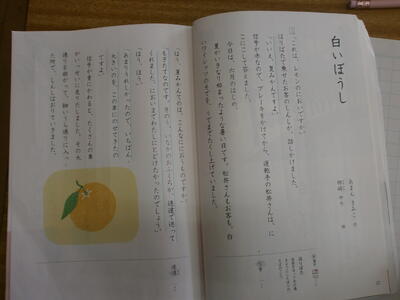 白いぼうし
あまん きみこ 作
「これは、レモンのにおいですか。」
ほりばたで乗せたお客のしんしが、話しかけました。
「いいえ、夏みかんですよ。」
信号が赤なので、ブレーキをかけてから、運転手の松井さんは、に
こにこして答えました。
今日は、六月のはじめ。
夏がいきなり始まったような暑い日です。松井さんもお客も、白
いワイシャツのそでを、うでまでたくし上げていました。
「ほう、夏みかんてのは、こんなににおうものですか。」
「もぎたてなのです。きのう、いなかのおふくろが、速達で送って
くれました。においまでわたしにとどけたかったのでしょう。」
「ほう、ほう。」
「あまりうれしかったので、いちばん
大きいのを、この車にのせてきたの
ですよ。」
信号が青にかわると、たくさんの車
がいっせいに走りだしました。その大
通りを曲がって、細いうら通りに入っ
た所で、しんしはおりていきました。